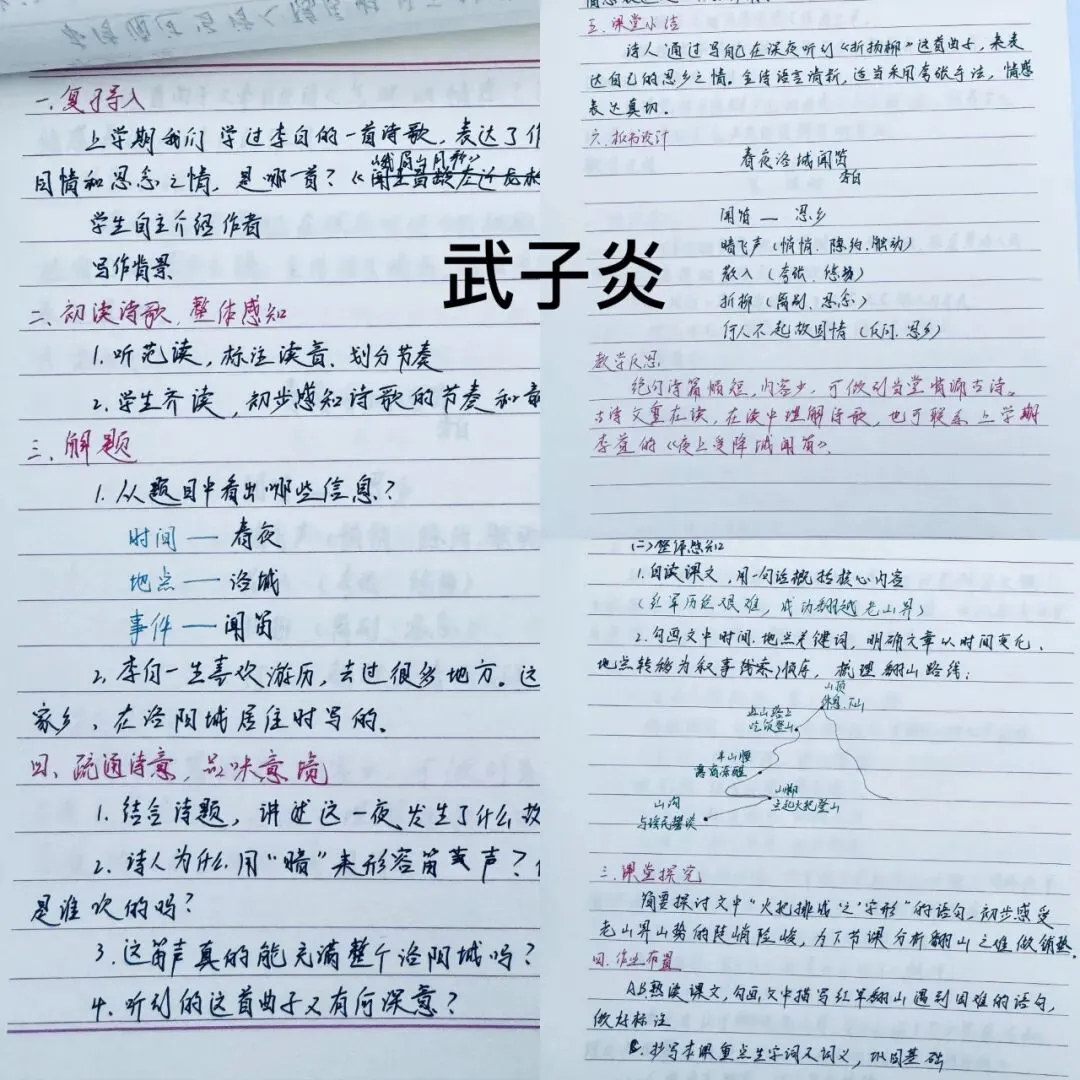 一、复习导入
上学期我们学过李白的一首诗歌,表达了作
《峨眉山月歌》
因情和思念之情,是哪首?《
学生自主介绍作者
写作背景
二、初读诗歌,整体感知
1.听范读,标注读音、划分节奏
2.学生齐读,初步感知诗歌的节奏和韵
三、解题
1.从题目中看出哪些信息?
时间——春夜
地点——洛城
事件——闻笛
2.李白一生喜欢游历,去过很多地方。这
家乡、在洛阳城居住时写的。
四、疏通诗意,品味意境
1.结合诗题,讲述这一夜发生了什么故
2.诗人为什么用“暗”来形容笛声?
是谁吹的吗?
3.这笛声真的能充满整个洛阳城吗?
4.听到的这首曲子又有何深意?
武子炎
五、课堂小结
诗人通过写自己在深夜听到《折杨柳》这首曲子,来表
达自己的思乡之情。全诗语言清新,适当采用夸张手法,情感
表达真切。
六、板书设计
春夜洛城闻笛
李白
闻笛—思乡
暗飞声(悄悄、隐约、触动)
散入(夸张、悠扬)
折柳(离别、思念)
何人不起故园情(反问、思乡)
教学反思
绝句诗篇幅短,内容少,可做到当堂背诵古诗。
古诗文重在读,在读中理解诗歌,也可联系上学期
李益的《夜上受降城闻笛》。
(二)整体感知
1.自读课文,用一句话概括核心内容
(红军历经艰难,成功翻越老山界)
2.勾画文中时间、地点关键词,明确文章以时间变化、
地点转移为叙事线索顺序,梳理翻山路线:
山顶
休息、下山
吃饭登山
半山腰
寒夜冻醒
山脚
点起火把登山
山沟
与瑶民攀谈
三、课堂探究
简要探讨文中“火把排成‘之’字形”的语句,初步感受
老山界山势的陡峭险峻,为下节课分析翻山之难做铺垫。
四、作业布置
AB.熟读课文,勾画文中描写红军翻山遇到困难的语句,
做好标注
C.抄写本课重点生字词及词义,巩固基础